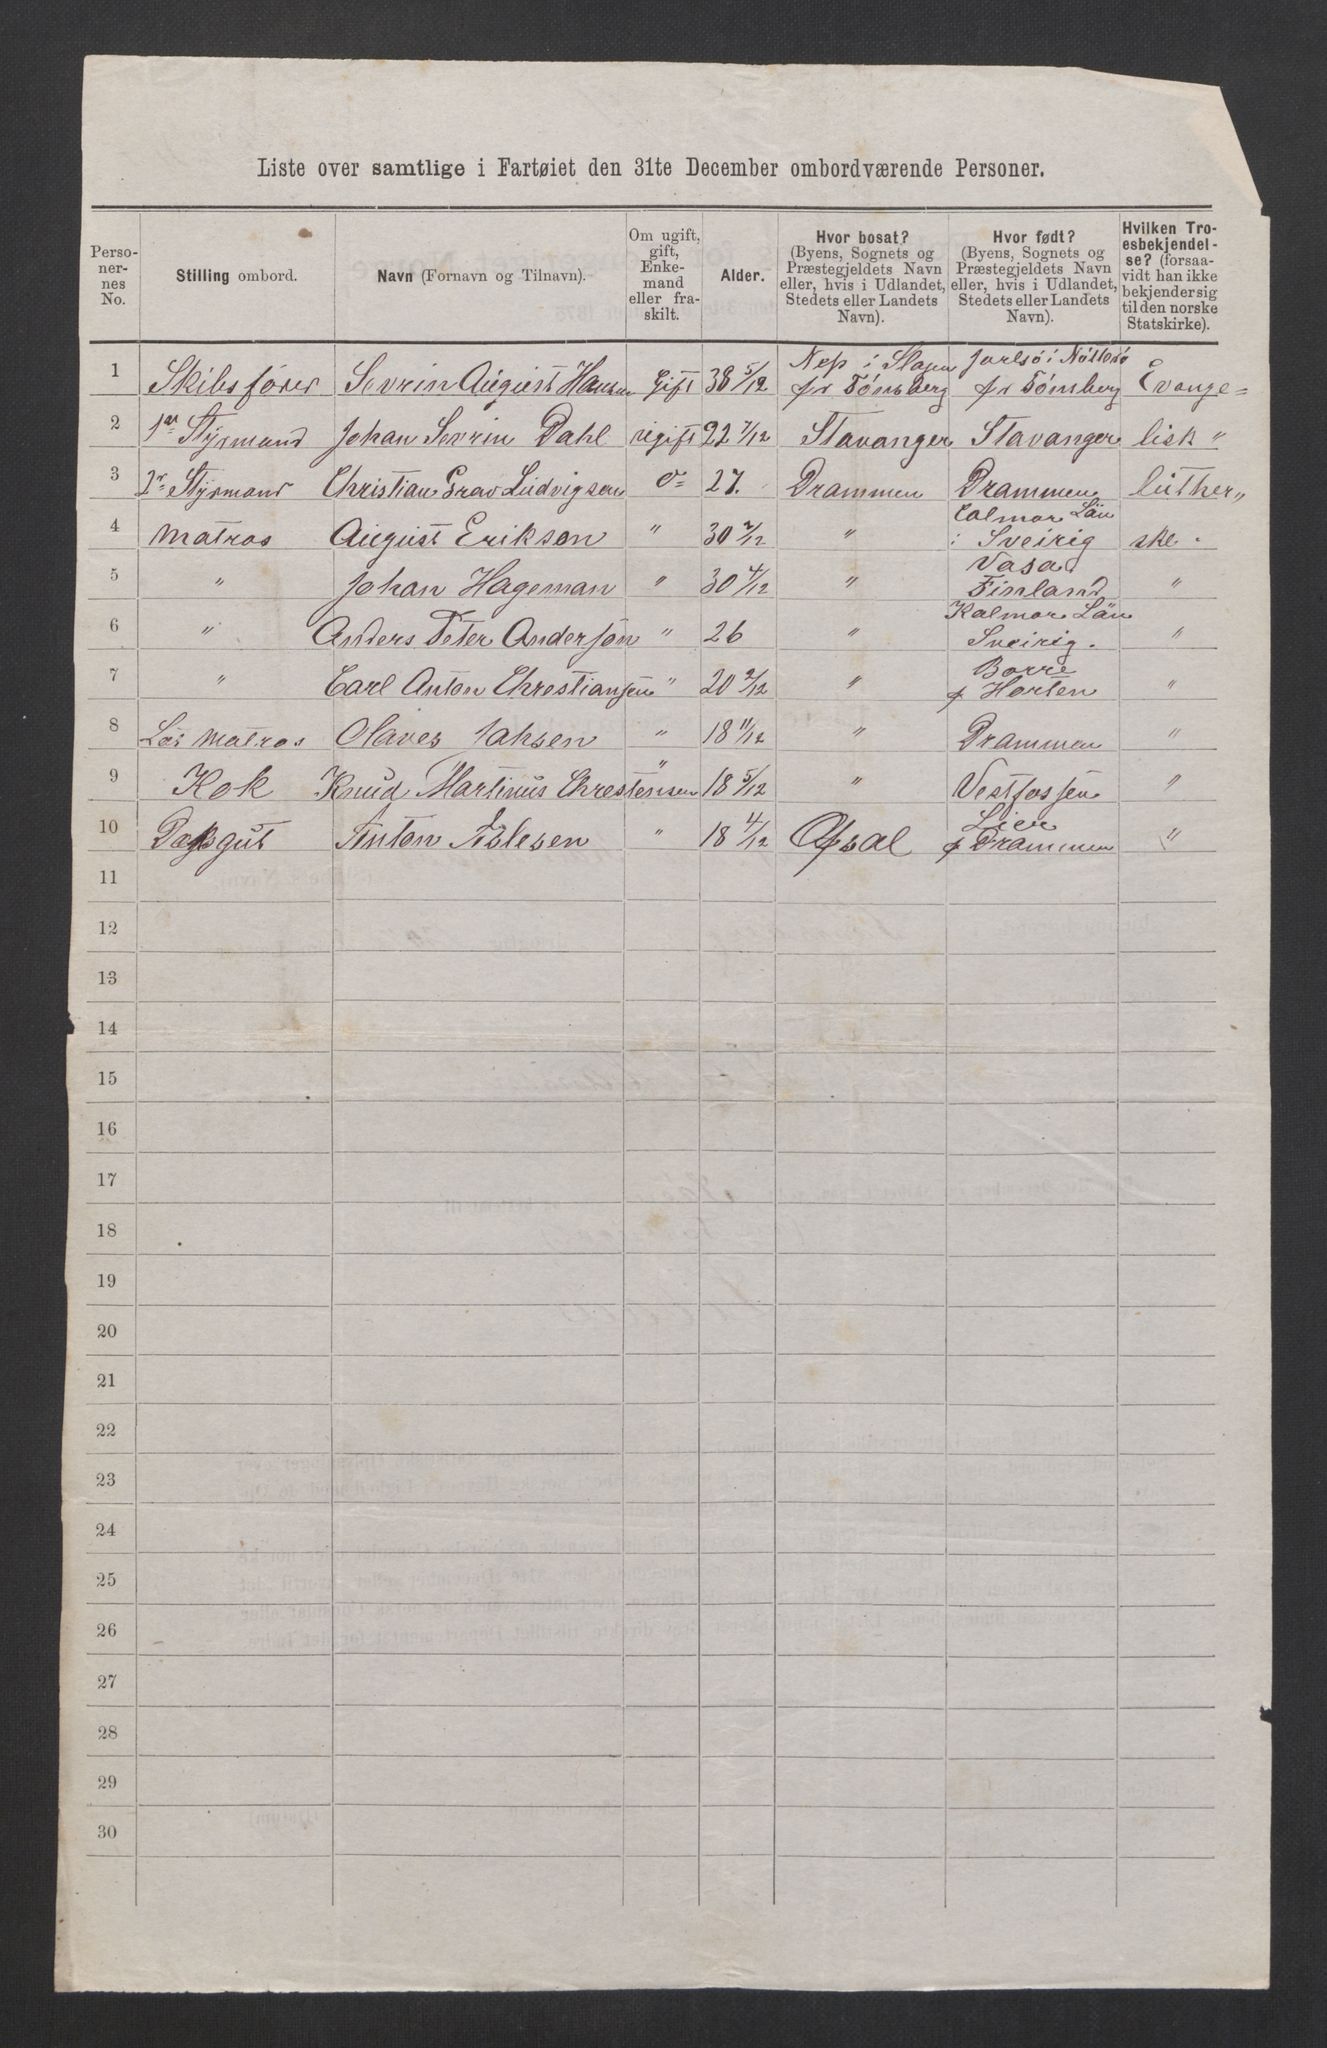 Liste over samtlige i Fartøiet den 31te December ombordværende Personer.
Perso-
ner-
nes
No.
Stilling ombord.
Navn (Fornavn og Tilnavn).
Om ugift,
gift,
Enke-
mand
eller fra-
skilt.
Alder.
Hvor bosat?
(Byens, Sognets og
Præstegjeldets Navn
eller, hvis i Udlandet,
Stedets eller Landets
Navn).
Hvor født?
(Byens, Sognets og
Præstegjeldets Navn
eller, hvis i Udlandet,
Stedets eller Landets
Navn).
Hvilken Tro-
esbekjendel-
se? (forsaa-
vidt han ikke
bekjender sig
til den norske
Statskirke).
1 Skibsfører Sevrin August Hansen Gift 38 5/12 Nes i Slagen pr Tönsberg Jarlsö i Nötterö pr Tönsberg Evange=
2 1er Styrmand Johan Sevrin Dahl ugift 22 7/12 Stavanger Stavanger lisk "
3 2r Styrmand Christian Grav Ludvigsen 27. Drammen Drammen luther"
4 Matros August Erikson " 30 2/12 " Calmar Län i Sveirig ske.
5 " Johan Hageman " 30 4/12 " Vasa Finland "
6 " Anders Peter Anderson " 26 " Kalmar Län Sveirig. "
7 " Carl Anton Chrestiansen " 20 2/12 " Borre p Horten "
8 Let Matros Olaves " 18 11/12 " Drammen "
9 Kok Knud Martinus Chrestensen " 18 5/12 " Vestfossen "
10 Anton Aslesen " 18 4/12 Lier p Drammen "
11
12
13
14
15
16
17
18
19
20
21
22
23
24
25
26
27
28
29
30